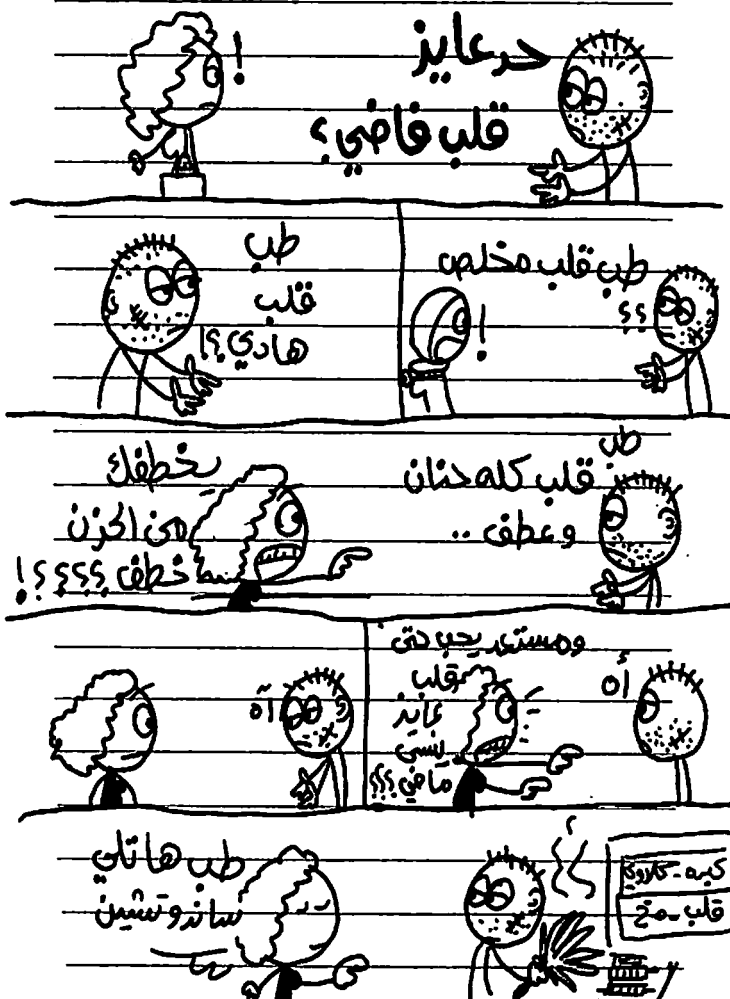 حد عايز
قلب فاضي؟
!
طب قلب مخلص
؟؟
!
طب
قلب
هادي؟!
طب
قلب كله حنان
وعطف ..
يخطفك
من الحزن
خطف ؟؟؟؟!
أه
ومستعد يحب حتى
قلب
عايز
ينسى
ماضي؟؟؟
آه
كبده - كلاوي
قلب - مخ
طب هاتلي
ساندوتشين